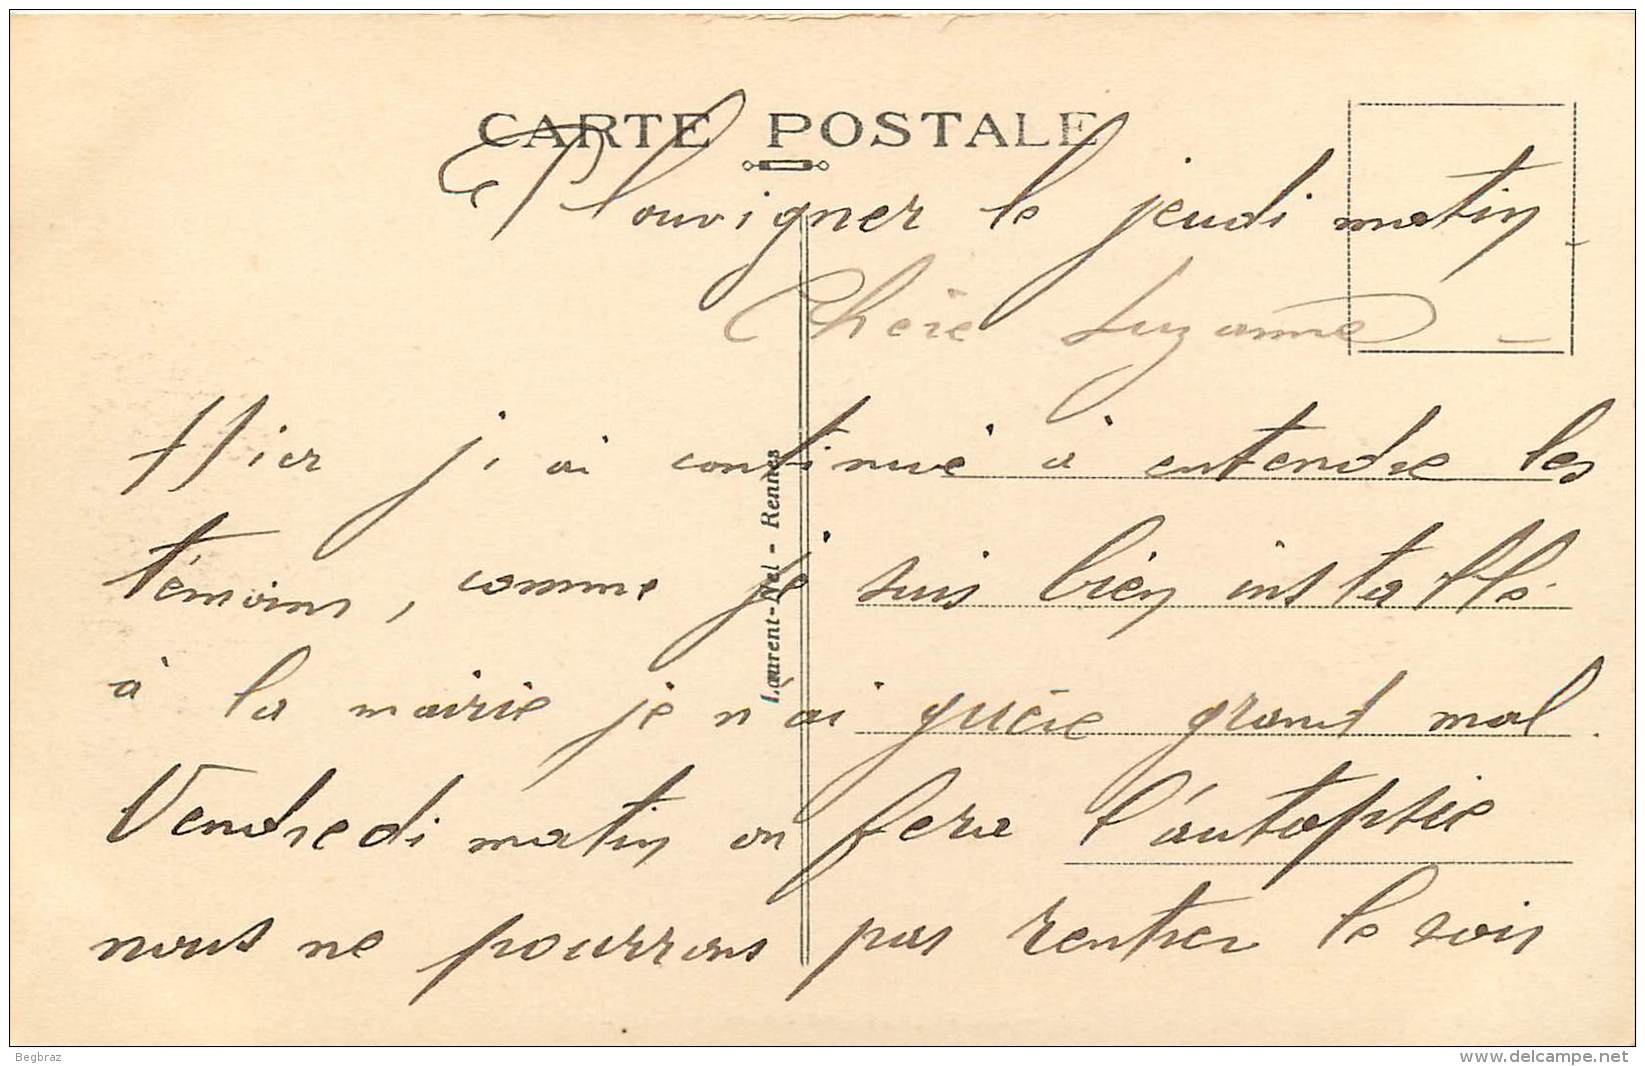 CARTE POSTALE
Plouvigner le jeudi matin
Chère Suzanne
Hier j'ai continué à entendre les
témoins, comme je suis bien installé
à la mairie je n'ai guère grand mal.
Vendredi matin on fera l'autopsie
nous ne pourrons pas rentrer le soir
Laurent-Nel - Rennes
Begbraz
www.delcampe.net